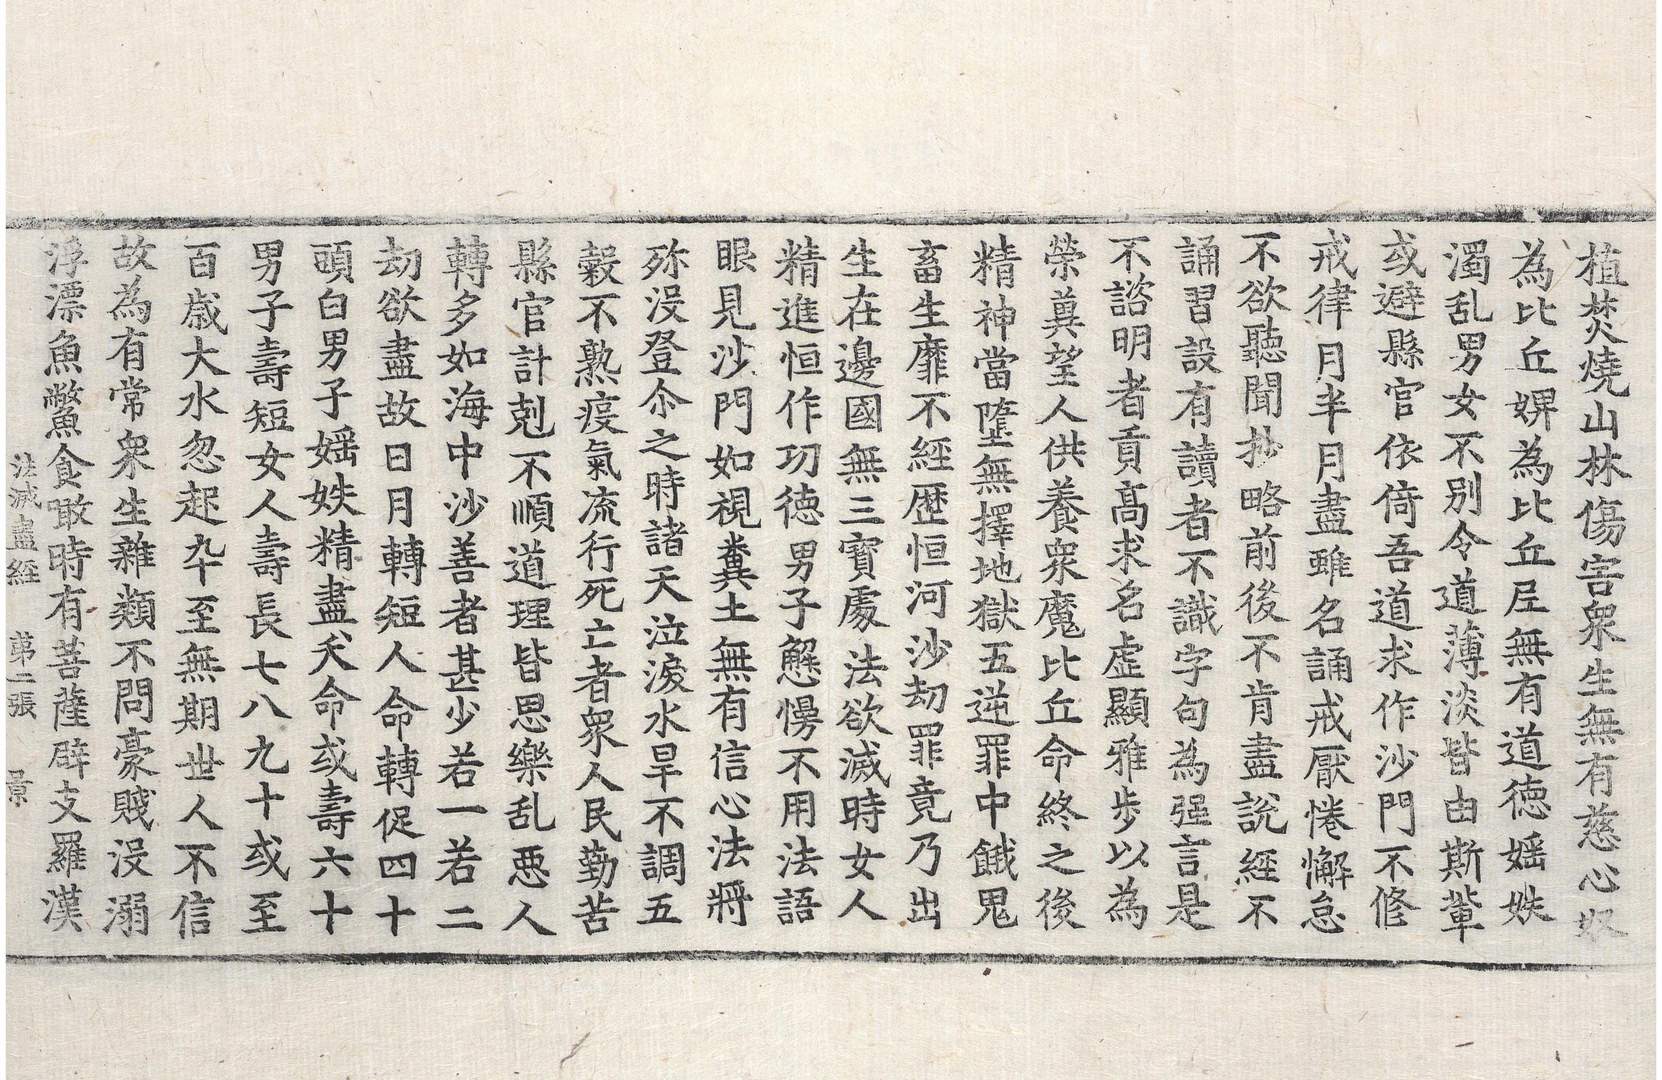 植焚燒山林傷害衆生無有慈心奴
為比丘婢為比丘尼無有道德婬妷
濁乱男女不别令道薄淡皆由斯輩
或避縣官依倚吾道求作沙門不修
戒律月半月盡雖名誦戒厭惓懈怠
不欲聽聞抄略前後不肯盡說經不
誦習設有讀者不識字句為强言是
不諮明者貢高求名虛顯雅步以為
榮冀望人供養衆魔比丘命終之後
精神當墮無擇地獄五逆罪中餓鬼
畜生靡不經歷恒河沙劫罪竟乃出
生在邊國無三寶處法欲滅時女人
精進恒作功德男子懈慢不用法語
眼見沙門如視糞土無有信心法將
殄沒登尒之時諸天泣淚水旱不調五
穀不熟疫氣流行死亡者衆人民勤苦
縣官計剋不順道理皆思樂乱惡人
轉多如海中沙善者甚少若一若二
劫欲盡故日月轉短人命轉促四十
頭白男子婬妷精盡夭命或壽六十
男子壽短女人壽長七八九十或至
百歲大水忽起卒至無期世人不信
故為有常衆生雜類不問豪賤沒溺
浮漂魚鱉食噉時有菩薩辟支羅漢
法滅盡經 第二張 景